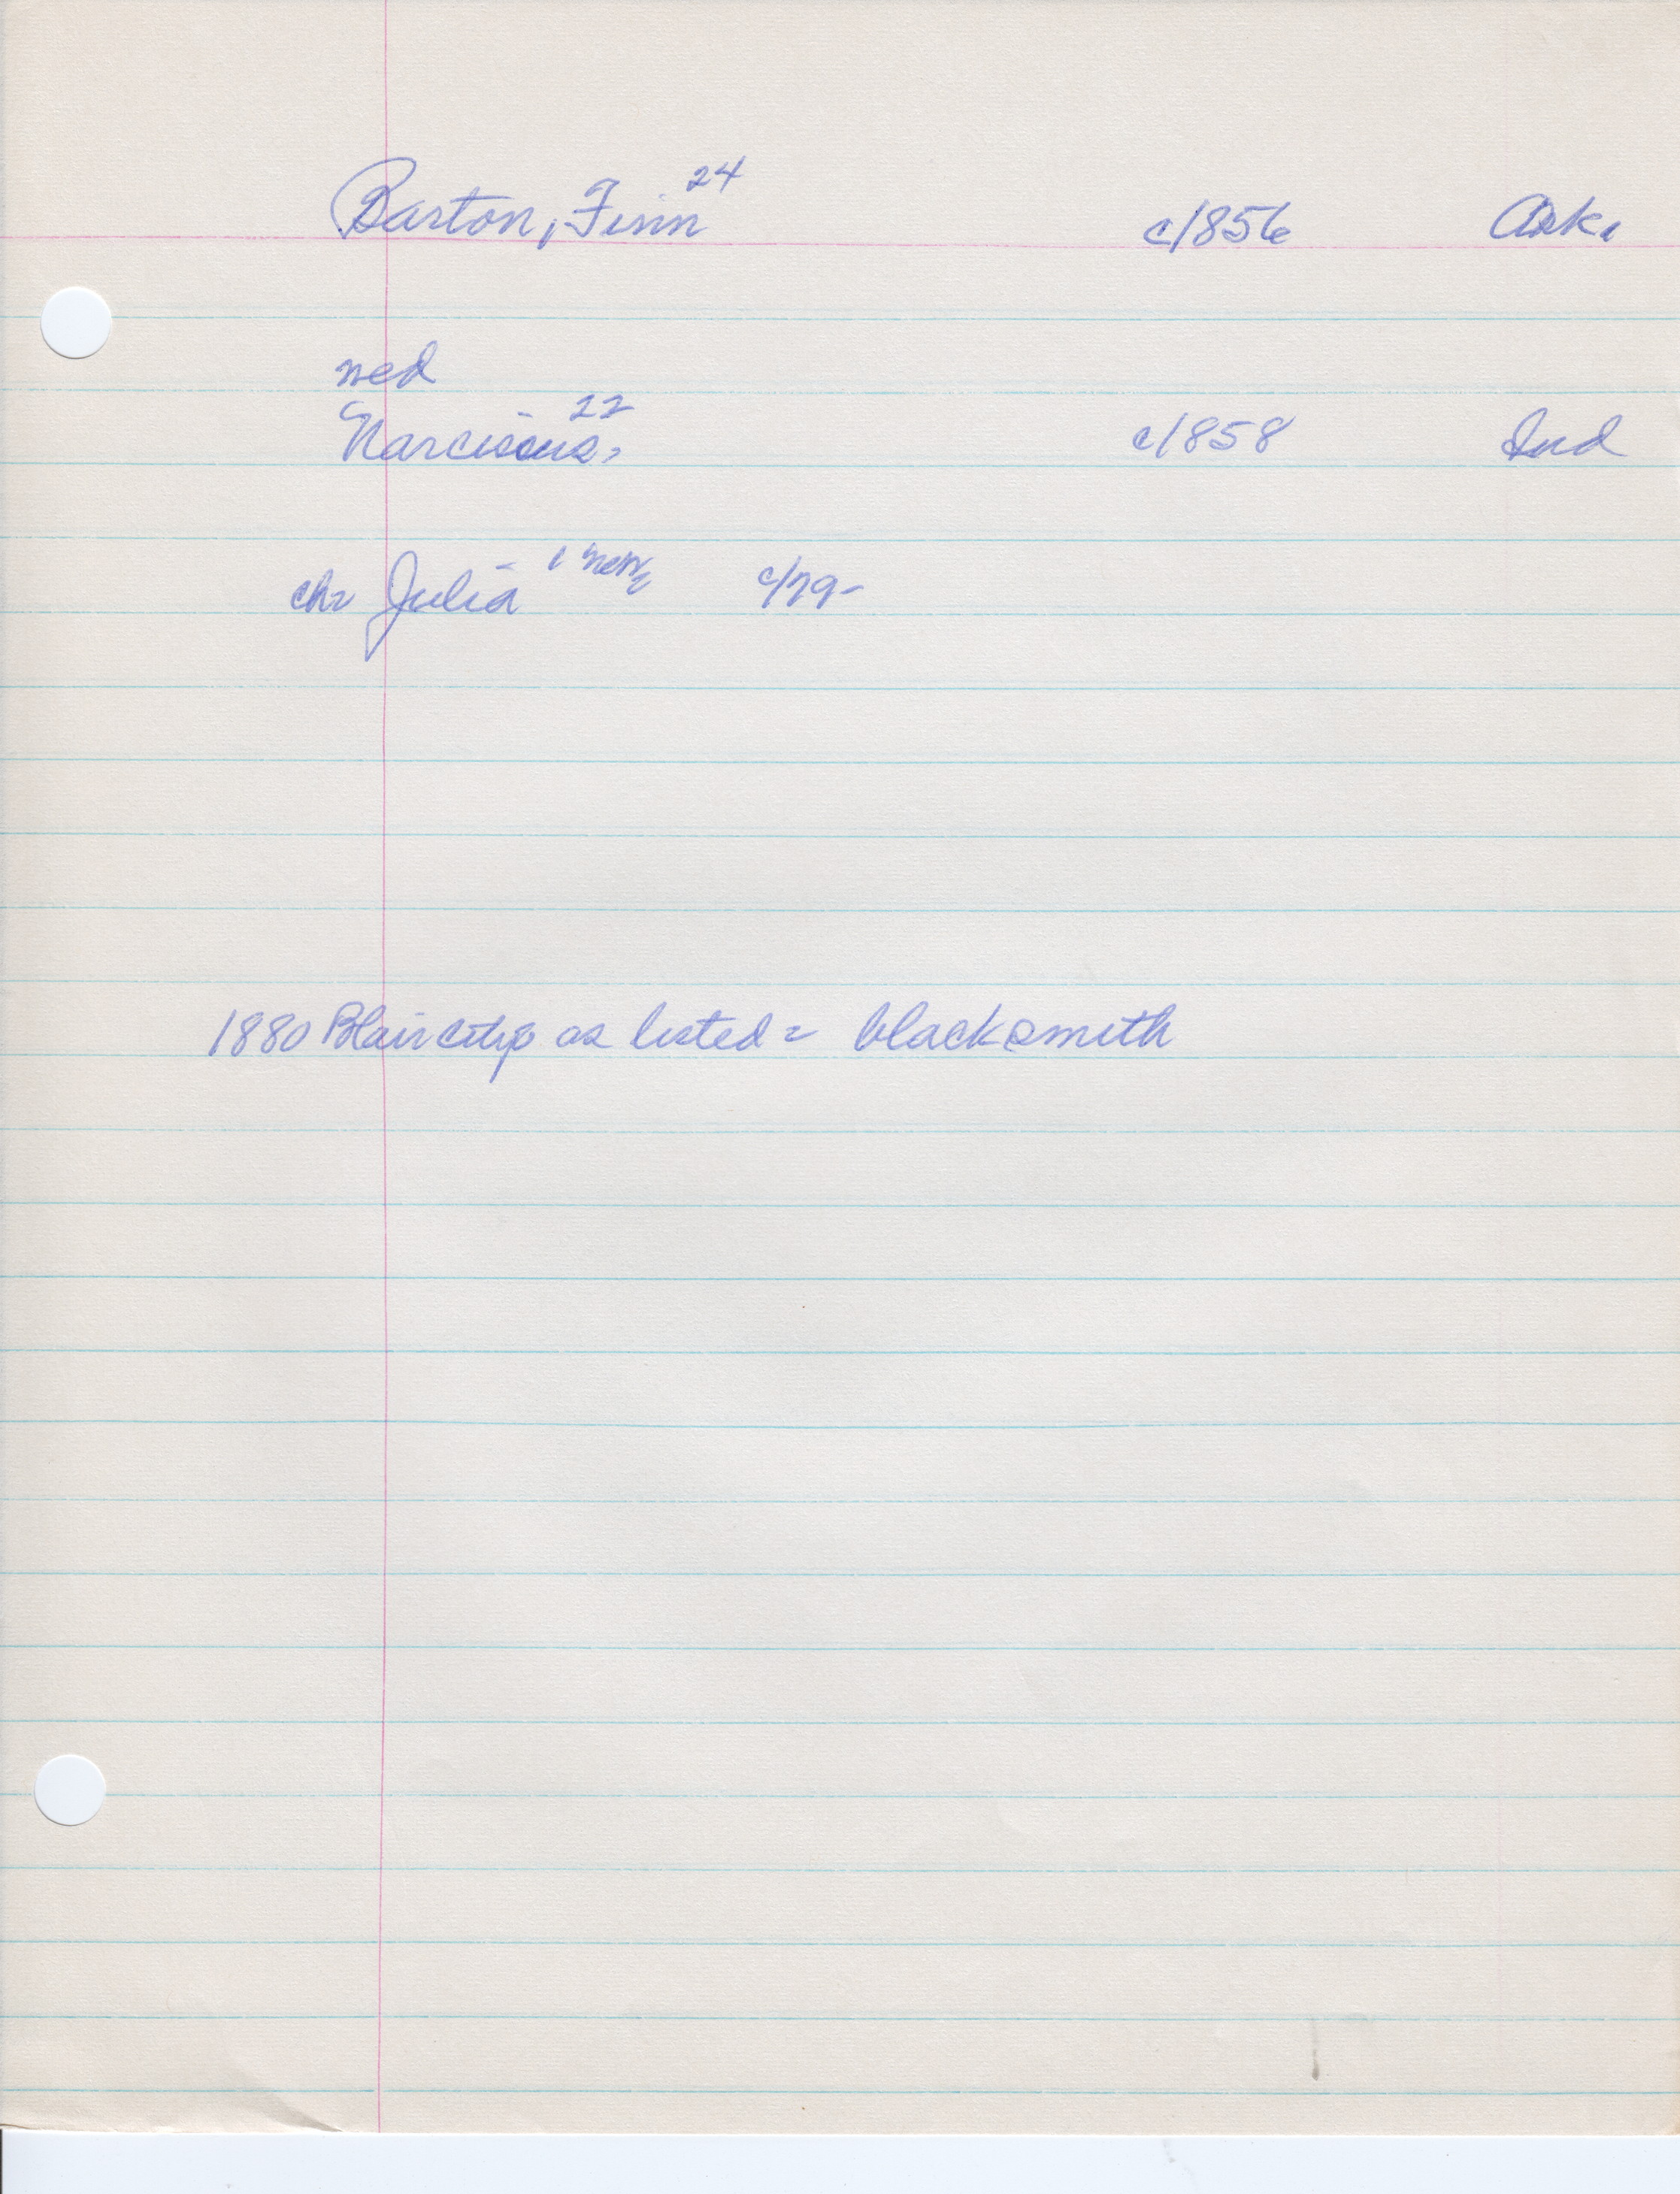 Barton, Finn 24 c/1856 Ark.
wed
Narcissus, 22 c/1858 Ind
ch= Julia 1 c/79-
1880 Blair city as listed = blacksmith